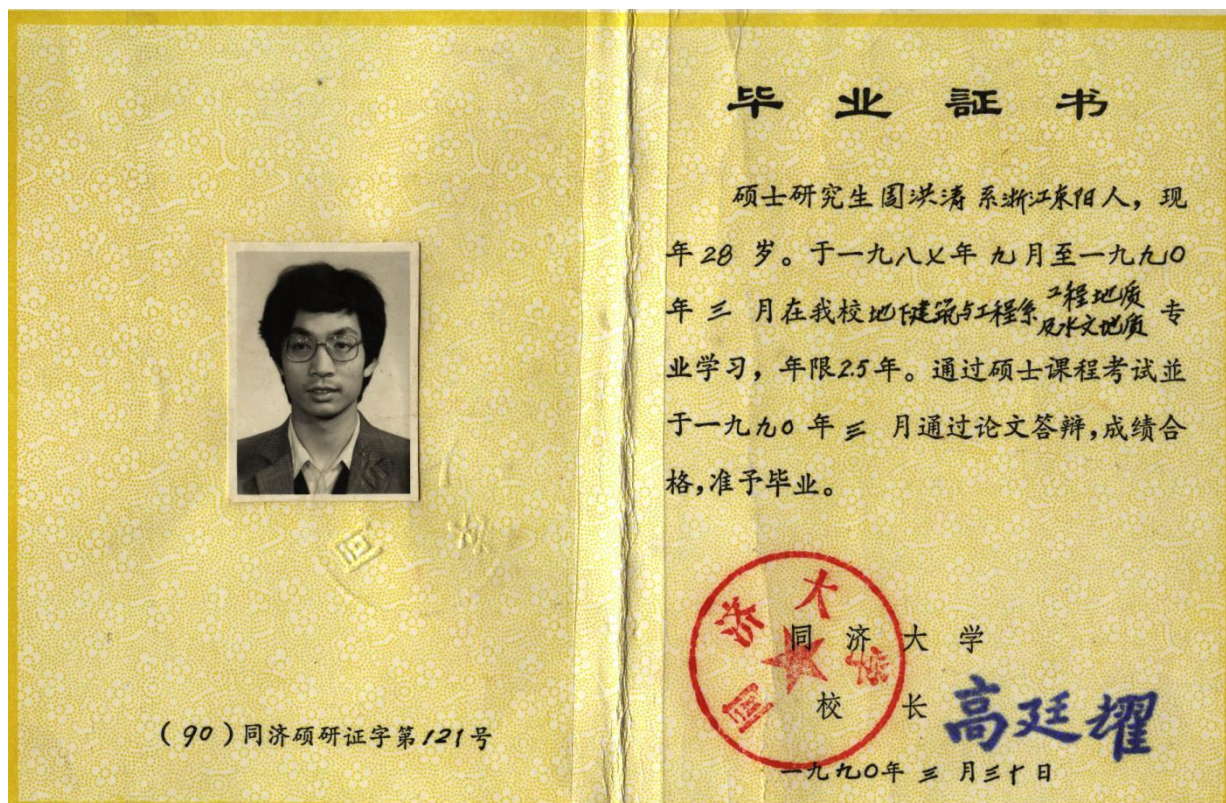 (90)同济硕研证字第121号
毕业証书
硕士研究生周洪涛系浙江东阳人，现
年28岁。于一九八七年九月至一九九〇
年三月在我校地下建筑与工程系工程地质及水文地质专
业学习，年限2.5年。通过硕士课程考试並
于一九九〇年三月通过论文答辩,成绩合
格,准予毕业。
同济大学
同济大学
校长 高廷耀
一九九〇年三月三十日